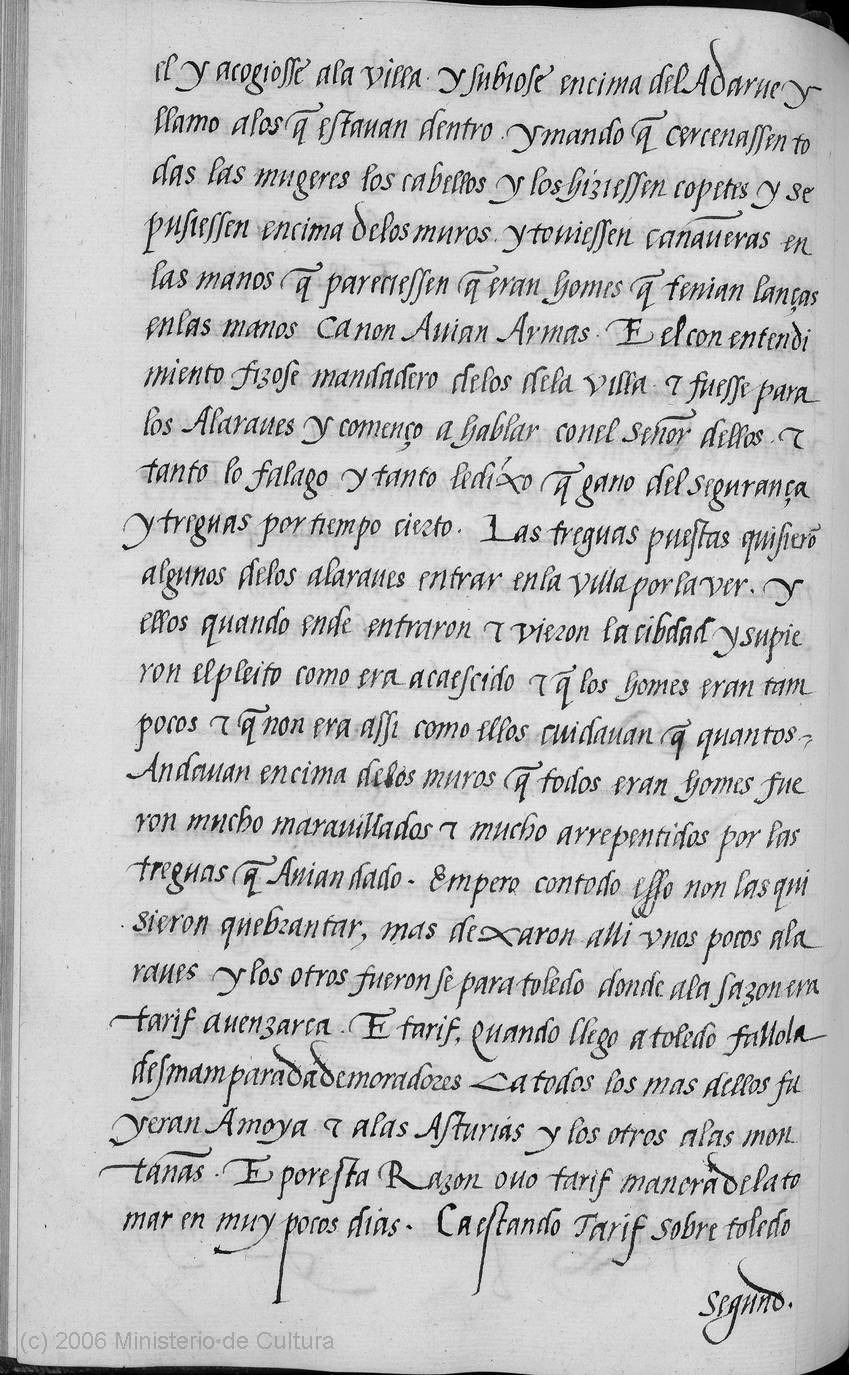 el y acogiosse ala villa. y subiose encima del Adarue y
llamo alos q̃ estauan dentro. y mando q̃ cercenassen to
das las mugeres los cabellos y los hiziessen copetes y se
pusiessen encima delos muros. y touiessen cañaueras en
las manos q̃ pareciessen q̃ eran homes q̃ tenian lanças
enlas manos Ca non Auian Armas. E el con entendi
miento fizose mandadero delos dela villa τ fuesse para
los Alaraues y començo a hablar conel señor dellos. τ
tanto lo falago y tanto ledixo q̃ gano del segurança
y treguas por tiempo cierto. Las treguas puestas quisierõ
algunos delos alaraues entrar enla villa por la ver. y
ellos quando ende entraron τ vieron la cibdad y supie
ron el pleito como era acaescido τ q̃ los homes eran tam
pocos τ q̃ non era assi como ellos cuidauan q̃ quantos
Andauan encima delos muros q̃ todos eran homes fue
ron mucho marauillados τ mucho arrepentidos por las
treguas q̃ Auian dado. Empero contodo esso non las qui
sieron quebrantar, mas dexaron alli vnos pocos ala
raues y los otros fueronse para toledo donde ala sazon era
tarif auenzarca. E tarif, quando llego a toledo fallola
desmamparada de moradores Ca todos los mas dellos fu
yeran Amoya τ alas Asturias y los otros alas mon
tañas. E por esta Razon ouo tarif manera de la to
mar en muy pocos dias. Ca estando Tarif sobre toledo
segund.
(c) 2006 Ministerio de Cultura